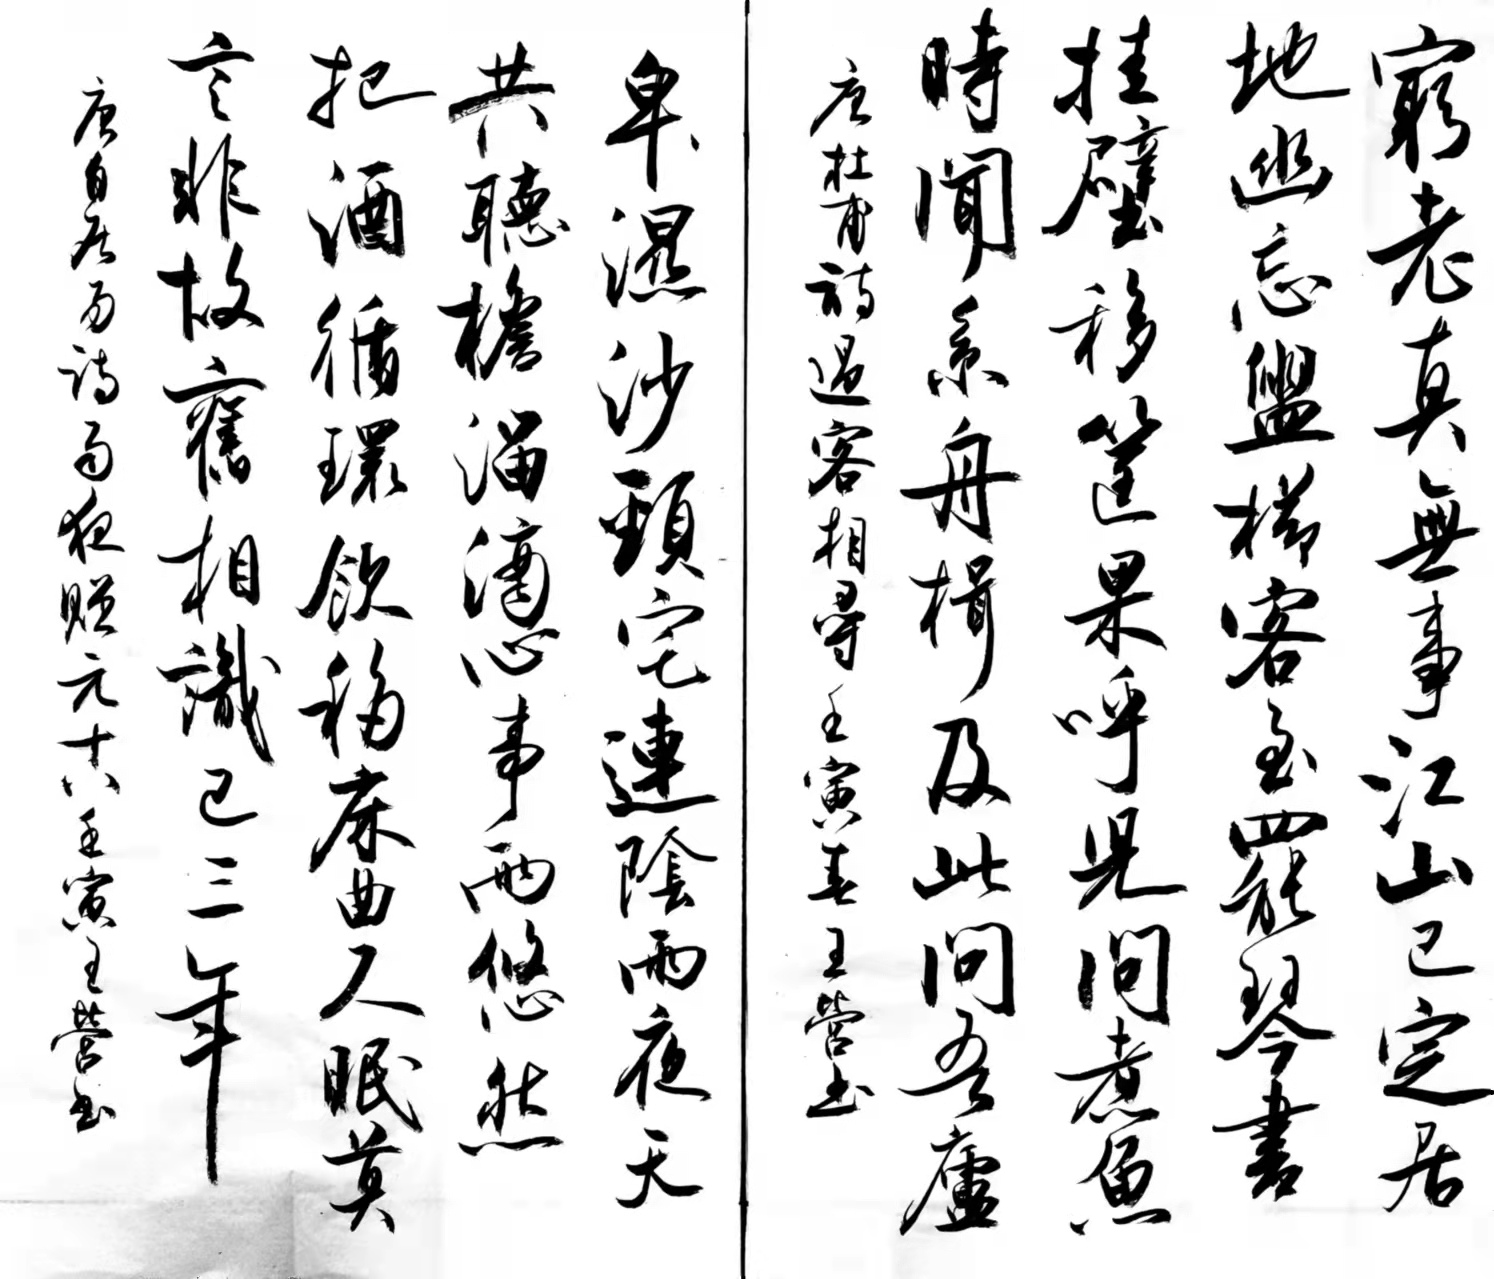 窮老真無事江山已定居
地幽忘盥櫛客至罷琴書
挂壁移筐果呼児問煮魚
時聞系舟楫及此問吾廬
唐杜甫詩過客相尋壬寅春王營书
卑濕沙頭宅連陰雨夜天
共聽檐溜滴心事兩悠然
把酒循環飲移床曲尺眠莫
言非故舊相識已三年
唐白居易詩雨夜贈元十八壬寅王營书